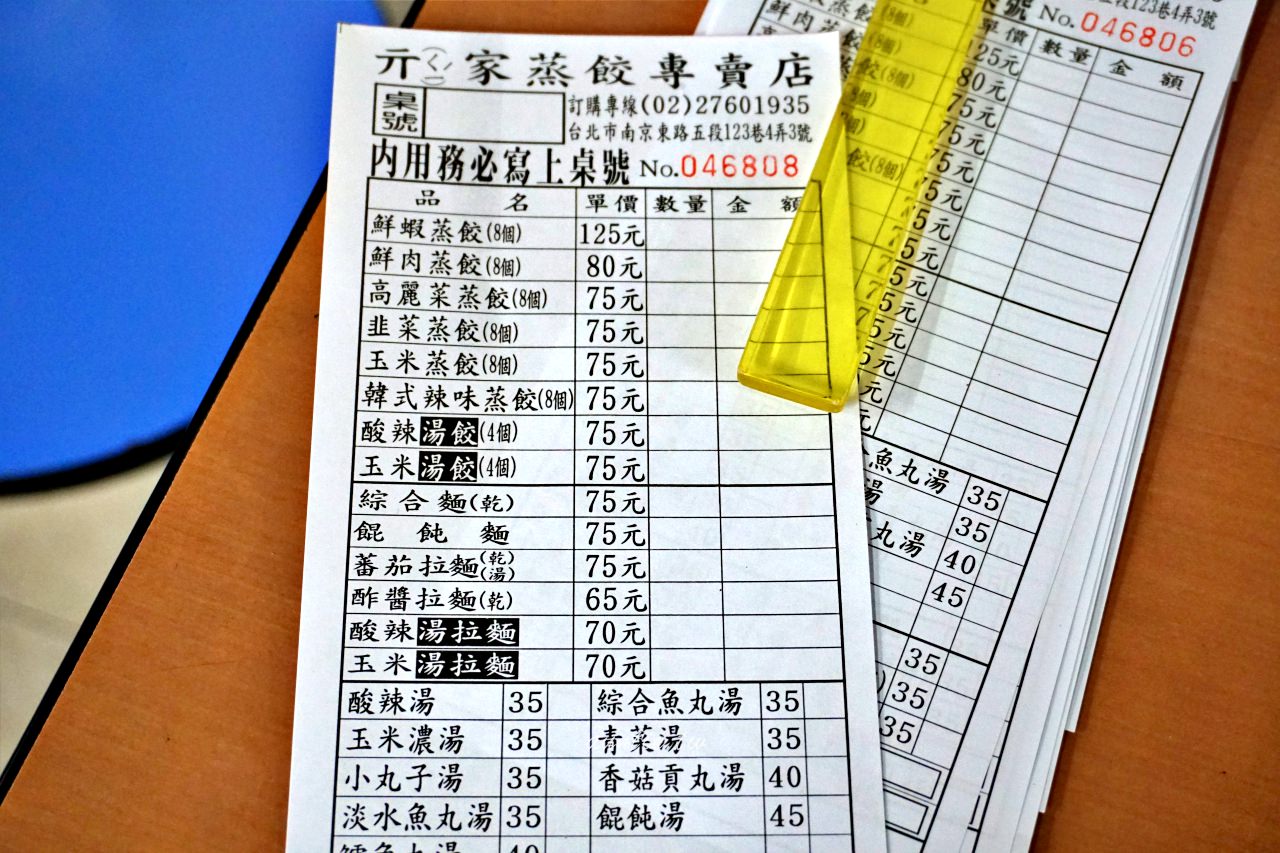 亓家蒸餃專賣店
桌號
訂購專線(02)27601935
台北市南京東路五段123巷4弄3號
內用務必寫上桌號 No.046808
品名 單價 數量 金額
鮮蝦蒸餃(8個) 125元
鮮肉蒸餃(8個) 80元
高麗菜蒸餃(8個) 75元
韭菜蒸餃(8個) 75元
玉米蒸餃(8個) 75元
韓式辣味蒸餃(8個) 75元
酸辣湯餃(4個) 75元
玉米湯餃(4個) 75元
綜合麵(乾) 75元
餛飩麵 75元
蕃茄拉麵(乾)(湯) 75元
酢醬拉麵(乾) 65元
酸辣湯拉麵 70元
玉米湯拉麵 70元
酸辣湯 35 綜合魚丸湯 35
玉米濃湯 35 青菜湯 35
小丸子湯 35 香菇貢丸湯 40
淡水魚丸湯 35 餛飩湯 45
桌號 No.046806
單價 數量 金額
125元
80元
75元
75元
75元
75元
75元
75元
75元
75元
75元
魚丸湯 35
湯 35
丸湯 40
45
35
35
35